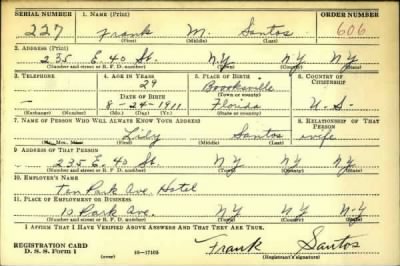 SERIAL NUMBER 1. NAME (Print) ORDER NUMBER
227 Frank M. Santos 606
(First) (Middle) (Last)
2. ADDRESS (Print)
235 E. 40 St. N.Y. N.Y. N.Y.
(Number and street or R. F. D. number) (Town) (County) (State)
3. TELEPHONE 4. AGE IN YEARS 5. PLACE OF BIRTH 6. COUNTRY OF CITIZENSHIP
29 Brooksville
DATE OF BIRTH (Town or county)
— 8-24-1911 Florida U.S.
(Exchange) (Number) (Mo.) (Day) (Yr.) (State or country)
7. NAME OF PERSON WHO WILL ALWAYS KNOW YOUR ADDRESS 8. RELATIONSHIP OF THAT PERSON
Lily Santos wife
(Mr., Mrs., Miss) (First) (Middle) (Last)
9. ADDRESS OF THAT PERSON
235 E. 40 St. N.Y. N.Y. N.Y.
(Number and street or R. F. D. number) (Town) (County) (State)
10. EMPLOYER'S NAME
Ten Park Ave. Hotel
11. PLACE OF EMPLOYMENT OR BUSINESS
10 Park Ave. N.Y. N.Y. N.Y.
(Number and street or R. F. D. number) (Town) (County) (State)
I AFFIRM THAT I HAVE VERIFIED ABOVE ANSWERS AND THAT THEY ARE TRUE.
REGISTRATION CARD
D. S. S. Form 1 (over) 16—17105 Frank Santos
(Registrant's signature)